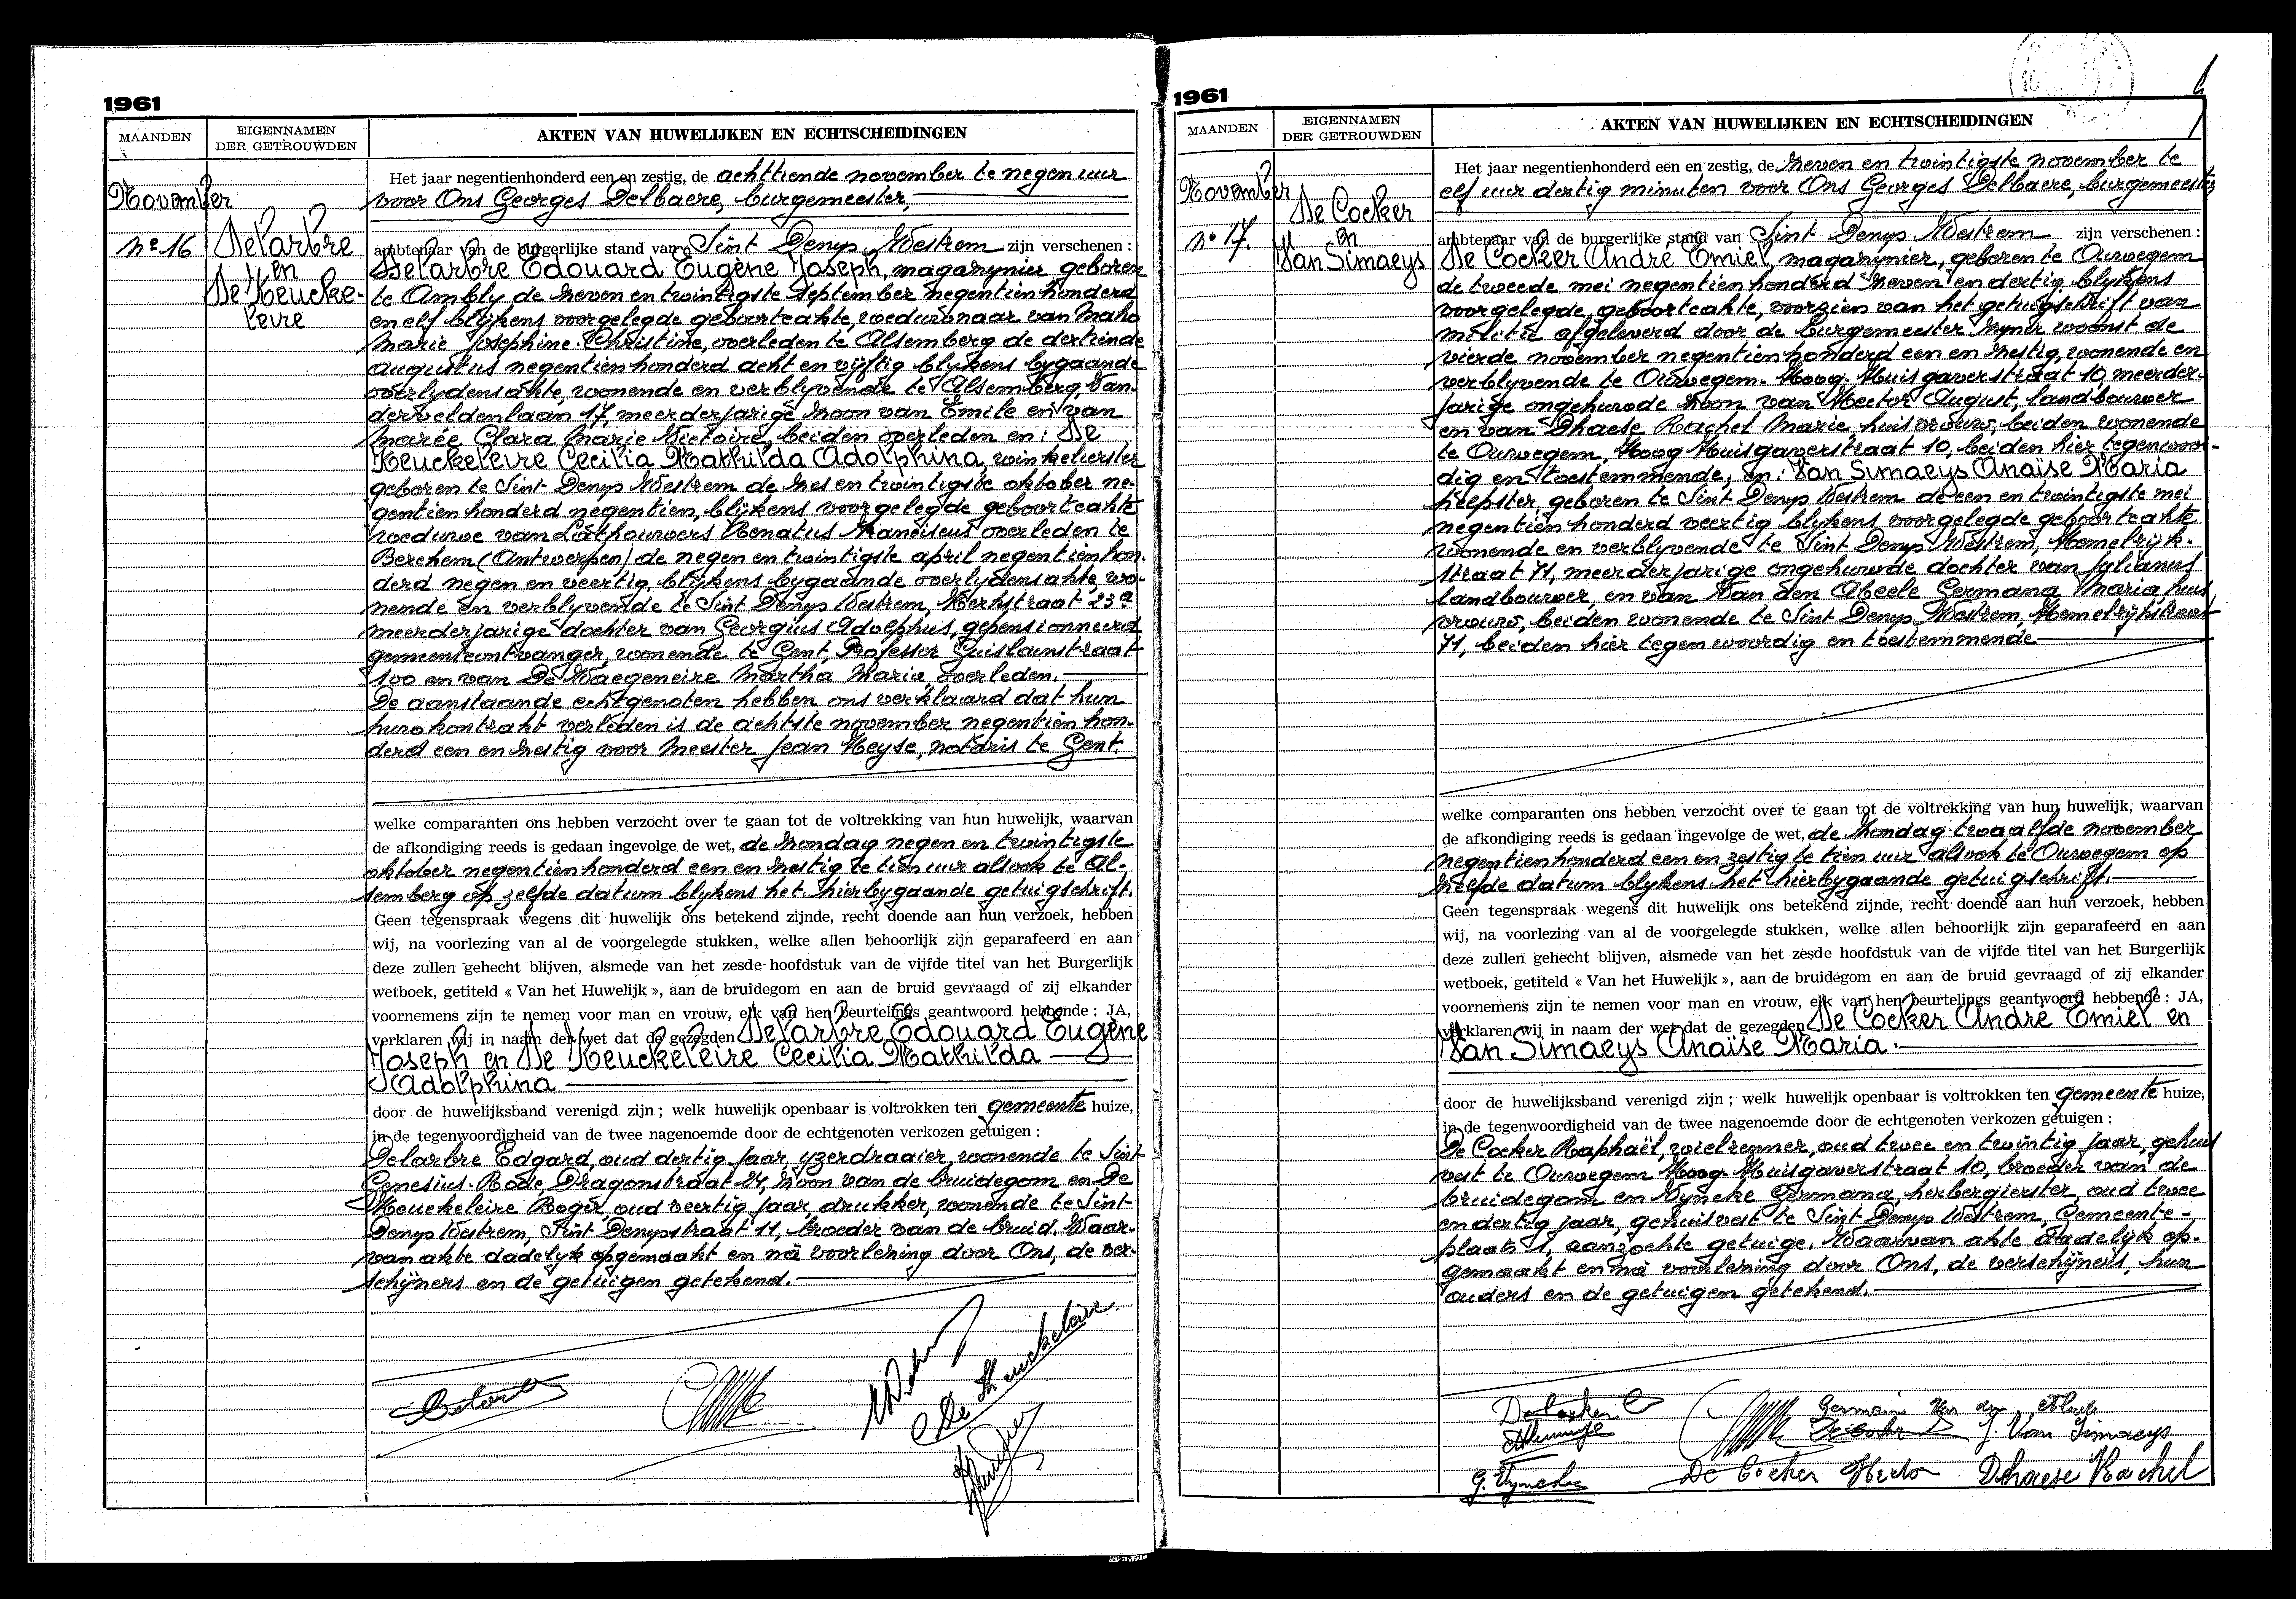 1961
MAANDEN
EIGENNAMEN
DER GETROUWDEN
AKTEN VAN HUWELIJKEN EN ECHTSCHEIDINGEN
November
nº 16
Delarbre
en
De Heucke-
leire
Het jaar negentienhonderd een en zestig, de achttiende november te negen uur
voor Ons Georges Delbaere, burgemeester,
ambtenaar van de burgerlijke stand van Sint Denys Westrem zijn verschenen :
Delarbre Edouard Eugène Joseph, magazynier geboren
te Ambly de zeven en twintigste september negentien honderd
en elf blijkens voorgelegde geboorteakte, weduwnaar van
Marie Josephine Christine, overleden te Alsemberg de dertiende
augustus negentienhonderd acht en vijftig blykens bygaande
overlydensakte, wonende en verblyvende te Alsemberg, Van-
derveldenlaan 17, meerderjarige zoon van Emile en van
Marée Clara Marie Victoire, beiden overleden en : De
Heuckeleire Cecilia Mathilda Adolphina, winkelierster
geboren te Sint Denys Westrem de zes en twintigste oktober ne-
gentien honderd negentien, blijkens voorgelegde geboorteakte
weduwe van Lathouwers Renatus Franciscus overleden te
Berchem (Antwerpen) de negen en twintigste april negentienhon-
derd negen en veertig, blijkens bygaande overlydensakte, wo-
nende en verblyvende te Sint Denys Westrem, Kerkstraat 23ª
meerderjarige dochter van Georgius Adolphus, gepensionneerd
gemeenteontvanger, wonende te Gent, Professor Guislainstraat
100 en van De Waegeneire Martha Maria, overleden.
De aanstaande echtgenoten hebben ons verklaard dat hun
huwkontrakt verleden is de achtste november negentien hon-
derd een en zestig voor Meester Jean Heyse, notaris te Gent.
welke comparanten ons hebben verzocht over te gaan tot de voltrekking van hun huwelijk, waarvan
de afkondiging reeds is gedaan ingevolge de wet, de zondag negen en twintigste
oktober negentienhonderd een en zestig te tien uur alsook te Al-
semberg op zelfde datum blykens het hierbygaande getuigschrift.
Geen tegenspraak wegens dit huwelijk ons betekend zijnde, recht doende aan hun verzoek, hebben
wij, na voorlezing van al de voorgelegde stukken, welke allen behoorlijk zijn geparafeerd en aan
deze zullen gehecht blijven, alsmede van het zesde hoofdstuk van de vijfde titel van het Burgerlijk
wetboek, getiteld « Van het Huwelijk », aan de bruidegom en aan de bruid gevraagd of zij elkander
voornemens zijn te nemen voor man en vrouw, elk van hen beurtelings geantwoord hebbende : JA,
verklaren wij in naam der wet dat de gezegden Delarbre Edouard Eugène
Joseph en De Heuckeleire Cecilia Mathilda
Adolphina
door de huwelijksband verenigd zijn ; welk huwelijk openbaar is voltrokken ten gemeente huize,
in de tegenwoordigheid van de twee nagenoemde door de echtgenoten verkozen getuigen :
Delarbre Edgard, oud dertig jaar, yzerdraaier, wonende te Sint
Genesius-Rode, Dragonstraat 24, zoon van de bruidegom en De
Heuckeleire Roger, oud veertig jaar, drukker, wonende te Sint-
Denys Westrem, Sint Denysstraat 11, broeder van de bruid. Waar-
van akte dadelyk opgemaakt en na voorlezing door Ons, de ver-
schijners en de getuigen getekend.
De Heuckeleire
1961
MAANDEN
EIGENNAMEN
DER GETROUWDEN
AKTEN VAN HUWELIJKEN EN ECHTSCHEIDINGEN
November
nº 17.
De Cocker
en
Van Simaeys
Het jaar negentienhonderd een en zestig, de zeven en twintigste november te
elf uur dertig minuten voor Ons Georges Delbaere, burgemeester
ambtenaar van de burgerlijke stand van Sint Denys Westrem zijn verschenen :
De Cocker André Emiel, magazynier, geboren te Ouwegem
de tweede mei negentien honderd zeven en dertig, blykens
voorgelegde, geboorteakte, voorzien van het getuigschrift van
militie afgeleverd door de burgemeester zyner woonst de
vierde november negentien honderd een en zestig, wonende en
verblyvende te Ouwegem. Hoog-Huisgaverstraat 10, meerder-
jarige ongehuwde zoon van Hector August, landbouwer
en van Dhaese Rachel Marie, huisvrouw, beiden wonende
te Ouwegem, Hoog Huisgaverstraat 10, beiden hier tegenwoor-
dig en toestemmende, en : Van Simaeys Anaïse Maria
helpster, geboren te Sint Denys Westrem de een en twintigste mei
negentien honderd veertig blykens voorgelegde geboorteakte
wonende en verblyvende te Sint Denys Westrem, Hemelrijk-
straat 71, meerderjarige ongehuwde dochter van Julianus
landbouwer, en van Van den Abeele Germana Maria huis
vrouw, beiden wonende te Sint Denys Westrem, Hemelrijkstraat
71, beiden hier tegenwoordig en toestemmende
welke comparanten ons hebben verzocht over te gaan tot de voltrekking van hun huwelijk, waarvan
de afkondiging reeds is gedaan ingevolge de wet, de zondag twaalfde november
negentienhonderd een en zestig te tien uur alsook te Ouwegem op
zelfde datum blykens het hierbygaande getuigschrift.
Geen tegenspraak wegens dit huwelijk ons betekend zijnde, recht doende aan hun verzoek, hebben
wij, na voorlezing van al de voorgelegde stukken, welke allen behoorlijk zijn geparafeerd en aan
deze zullen gehecht blijven, alsmede van het zesde hoofdstuk van de vijfde titel van het Burgerlijk
wetboek, getiteld « Van het Huwelijk », aan de bruidegom en aan de bruid gevraagd of zij elkander
voornemens zijn te nemen voor man en vrouw, elk van hen beurtelings geantwoord hebbende : JA,
verklaren wij in naam der wet dat de gezegden De Cocker André Emiel en
Van Simaeys Anaïse Maria.
door de huwelijksband verenigd zijn ; welk huwelijk openbaar is voltrokken ten gemeente huize,
in de tegenwoordigheid van de twee nagenoemde door de echtgenoten verkozen getuigen :
De Cocker Raphaël, wielrenner, oud twee en twintig jaar, gehuis
vest te Ouwegem Hoog-Huisgaverstraat 10, broeder van de
bruidegom en Wyncke Germana, herbergierster, oud twee
en dertig jaar, gehuisvest te Sint Denys Westrem, Gemeente-
plaats 1, aanzochte getuige. Waarvan akte dadelijk op-
gemaakt en na voorlezing door Ons, de verschijners, hun
ouders en de getuigen getekend.
Germaine Van den Abeele
J. Van Simaeys
G. Wyncke
De Cocker Hector
Dhaese Rachel